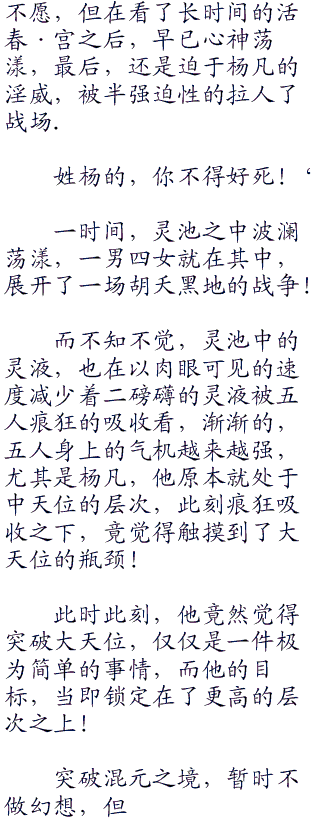 不愿，但在看了长时间的活
春·宫之后，早已心神荡
漾，最后，还是迫于杨凡的
淫威，被半强迫性的拉人了
战场.
姓杨的，你不得好死！‘
一时间，灵池之中波澜
荡漾，一男四女就在其中，
展开了一场胡天黑地的战争！
而不知不觉，灵池中的
灵液，也在以肉眼可见的速
度减少着二磅礴的灵液被五
人痕狂的吸收看，渐渐的，
五人身上的气机越来越强，
尤其是杨凡，他原本就处于
中天位的层次，此刻痕狂吸
收之下，竟觉得触摸到了大
天位的瓶颈！
此时此刻，他竟然觉得
突破大天位，仅仅是一件极
为简单的事情，而他的目
标，当即锁定在了更高的层
次之上！
突破混元之境，暂时不
做幻想，但